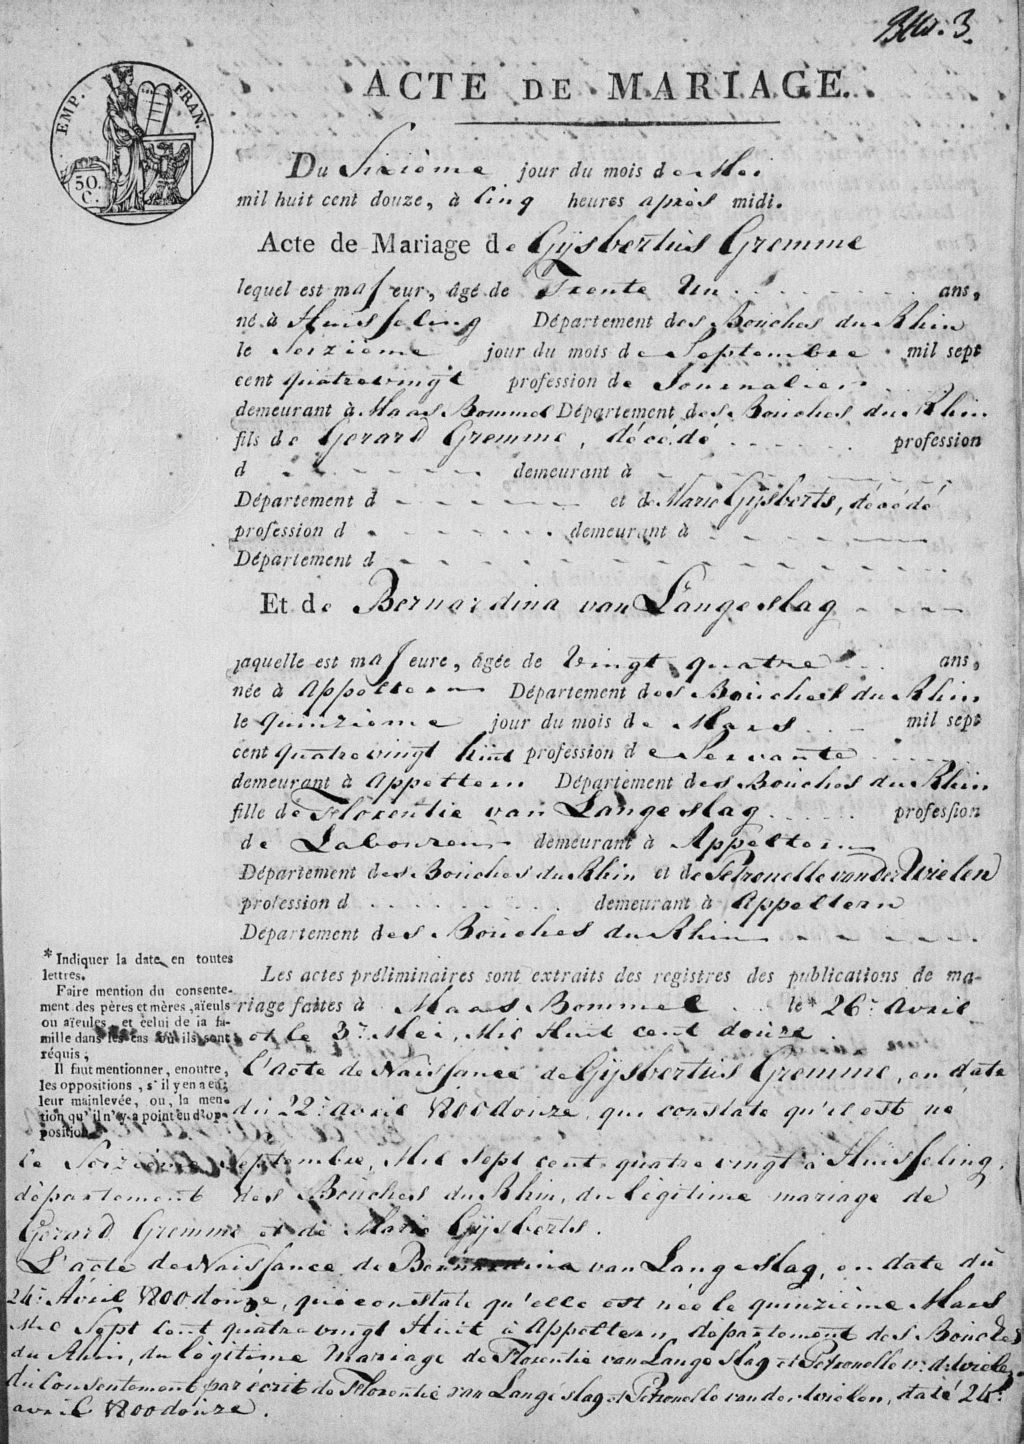 No. 3.
EMP. FRAN.
50. C.
ACTE DE MARIAGE.
Du Sixième jour du mois de Mei
mil huit cent douze, à Cinq heures après midi.
Acte de Mariage de Gijsbertus Gremme
lequel est majeur, âgé de Trente Un ans,
né à Huisseling Département des Bouches du Rhin
le Seizième jour du mois de Septembre mil sept
cent quatrevingt profession de Journalier
demeurant à Maas Bommel Département des Bouches du Rhin
fils de Gerard Gremme, décédé profession
d demeurant à
Département d et de Marie Gijsberts, décédé
profession d demeurant à
Département d
Et de Bernardina van Langeslag
laquelle est majeure, âgée de Vingt quatre ans,
née à Appeltern Département des Bouches du Rhin
le quinzième jour du mois de Mars mil sept
cent quatrevingt huit profession de Servante
demeurant à Appeltern Département des Bouches du Rhin
fille de Florentie van Langeslag profession
de Laboureur demeurant à Appeltern
Département des Bouches du Rhin et de Petronelle van der Wielen
profession d demeurant à Appeltern
Département des Bouches du Rhin
* Indiquer la date en toutes
lettres.
Faire mention du consente-
ment des pères et mères, aïeuls
ou aïeules, et celui de la fa-
mille dans les cas où ils sont
réquis;
Il faut mentionner, enoutre,
les oppositions, s'il y en a eu;
leur mainlevée, ou, la men-
tion qu'il n'y a point eu d'op-
position.
Les actes préliminaires sont extraits des registres des publications de ma-
riage faites à Maas Bommel le* 26e Avril
et le 3e Mei, Mil Huit cent douze.
L'acte de Naissance de Gijsbertus Gremme, en date
du 22e avril 1800 douze, qui constate qu'il est né
le Seizième Septembre, Mil Sept cent quatre vingt à Huisseling,
département des Bouches du Rhin, du légitime mariage de
Gerard Gremme et de Marie Gijsberts.
L'acte de Naissance de Bernardina van Langeslag, en date du
24e Avril 1800 douze, qui constate qu'elle est née le quinzième Mars
Mil Sept Cent quatre vingt Huit à Appeltern, département des Bouches
du Rhin, du légitime Mariage de Florentie van Langeslag et Petronelle v. d. Wielen.
du Consentement par écrit de Florentie van Langeslag et Petronelle van der Wielen, daté 24e
avril 1800 douze.